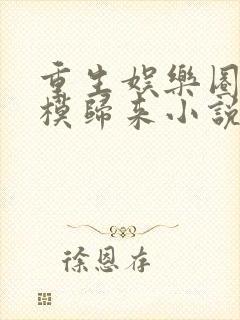 重生娛樂圈
模歸來小說
徐恩存